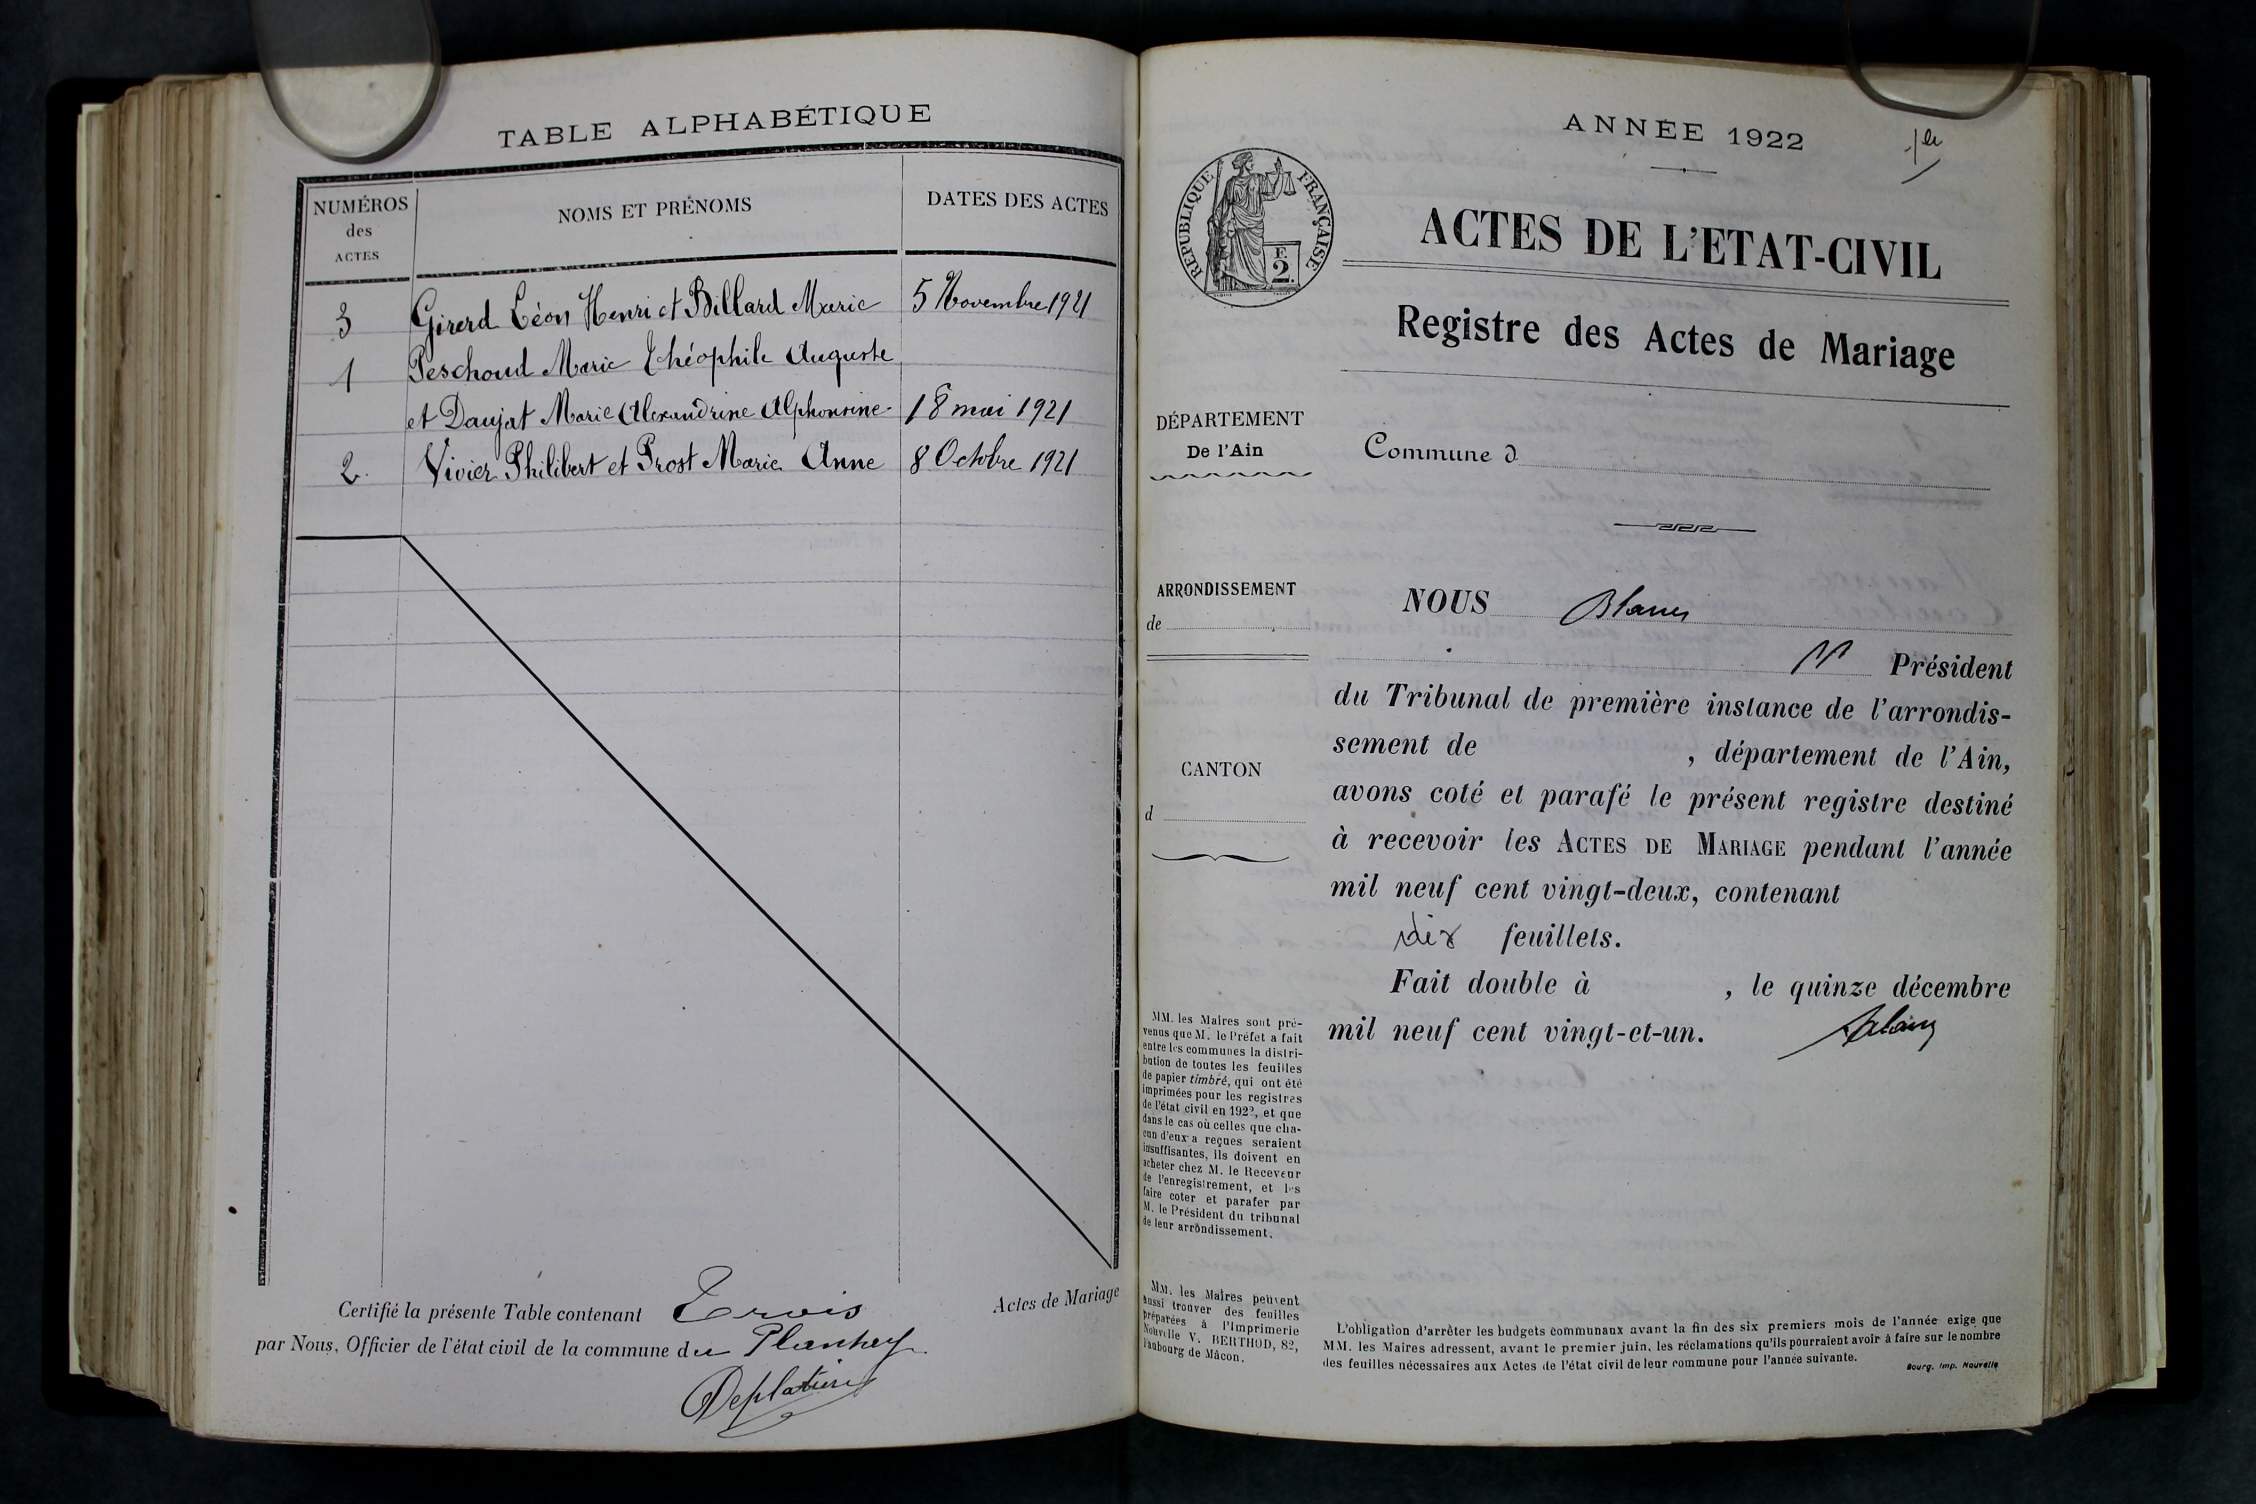 TABLE ALPHABÉTIQUE
NUMÉROS
des
ACTES
NOMS ET PRÉNOMS
DATES DES ACTES
3 Girerd Léon Henri et Billard Marie 5 Novembre 1921
1 Peschoud Marie Théophile Auguste
et Daujat Marie Alexandrine Alphonsine 18 mai 1921
2 Vivier Philibert et Prost Marie Anne 8 Octobre 1921
Certifié la présente Table contenant Trois Actes de Mariage
par Nous, Officier de l'état civil de la commune du Plantay
ANNÉE 1922
1er
RÉPUBLIQUE FRANÇAISE
E
2
ACTES DE L'ETAT-CIVIL
Registre des Actes de Mariage
DÉPARTEMENT
De l'Ain
Commune d
ARRONDISSEMENT
de
CANTON
d
NOUS
Président
du Tribunal de première instance de l'arrondis-
sement de , département de l'Ain,
avons coté et parafé le présent registre destiné
à recevoir les ACTES DE MARIAGE pendant l'année
mil neuf cent vingt-deux, contenant
dix feuillets.
Fait double à , le quinze décembre
mil neuf cent vingt-et-un.
MM. les Maires sont pré-
venus que M. le Préfet a fait
entre les communes la distri-
bution de toutes les feuilles
de papier timbré, qui ont été
imprimées pour les registres
de l'état civil en 1922, et que
dans le cas où celles que cha-
cun d'eux a reçues seraient
insuffisantes, ils doivent en
acheter chez M. le Receveur
de l'enregistrement, et les
faire coter et parafer par
M. le Président du tribunal
de leur arrondissement.
MM. les Maires peuvent
aussi trouver des feuilles
préparées à l'Imprimerie
Nouvelle V. BERTHOD, 82,
faubourg de Mâcon.
L'obligation d'arrêter les budgets communaux avant la fin des six premiers mois de l'année exige que
MM. les Maires adressent, avant le premier juin, les réclamations qu'ils pourraient avoir à faire sur le nombre
des feuilles nécessaires aux Actes de l'état civil de leur commune pour l'année suivante.
Bourg. Imp. Nouvelle